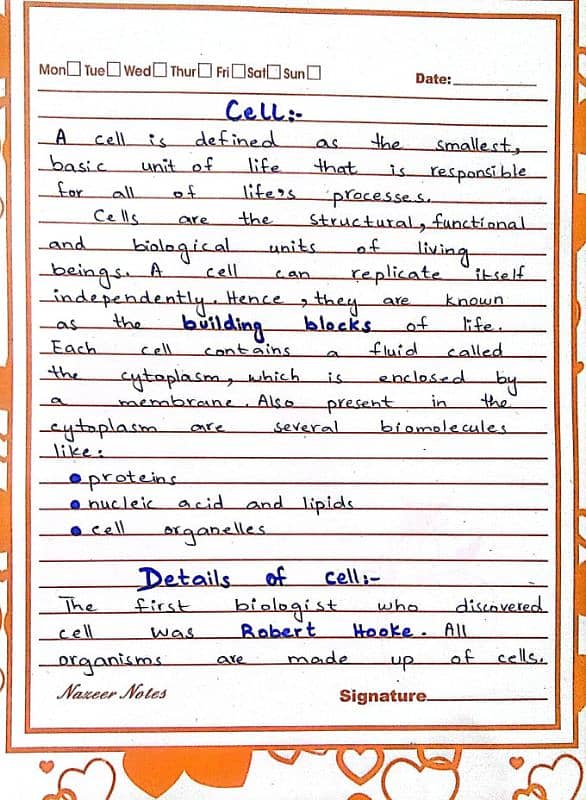 Mon Tue Wed Thur Fri Sat Sun
Date:
Cell:-
A cell is defined as the smallest,
basic unit of life that is responsible
for all of life's processes.
Cells are the structural, functional
and biological units of living
beings. A cell can replicate itself
independently. Hence , they are known
as the building blocks of life.
Each cell contains a fluid called
the cytoplasm, which is enclosed by
a membrane. Also present in the
cytoplasm are several biomolecules
like:
• proteins
• nucleic acid and lipids
• cell organelles
Details of cell:-
The first biologist who discovered
cell was Robert Hooke. All
organisms are made up of cells.
Nazeer Notes
Signature